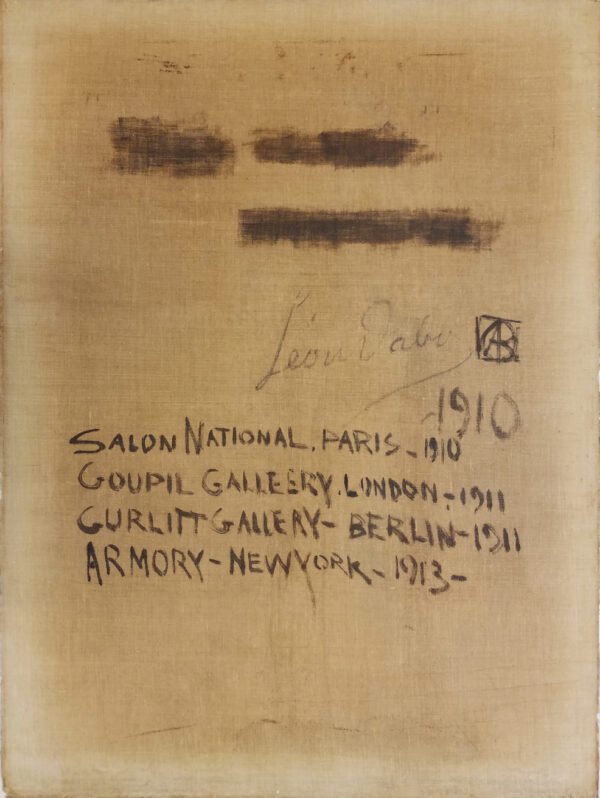 Léon Dabo
1910
SALON NATIONAL. PARIS - 1910
GOUPIL GALLEERY. LONDON. - 1911
GURLITT GALLERY - BERLIN - 1911
ARMORY - NEW YORK - 1913 -